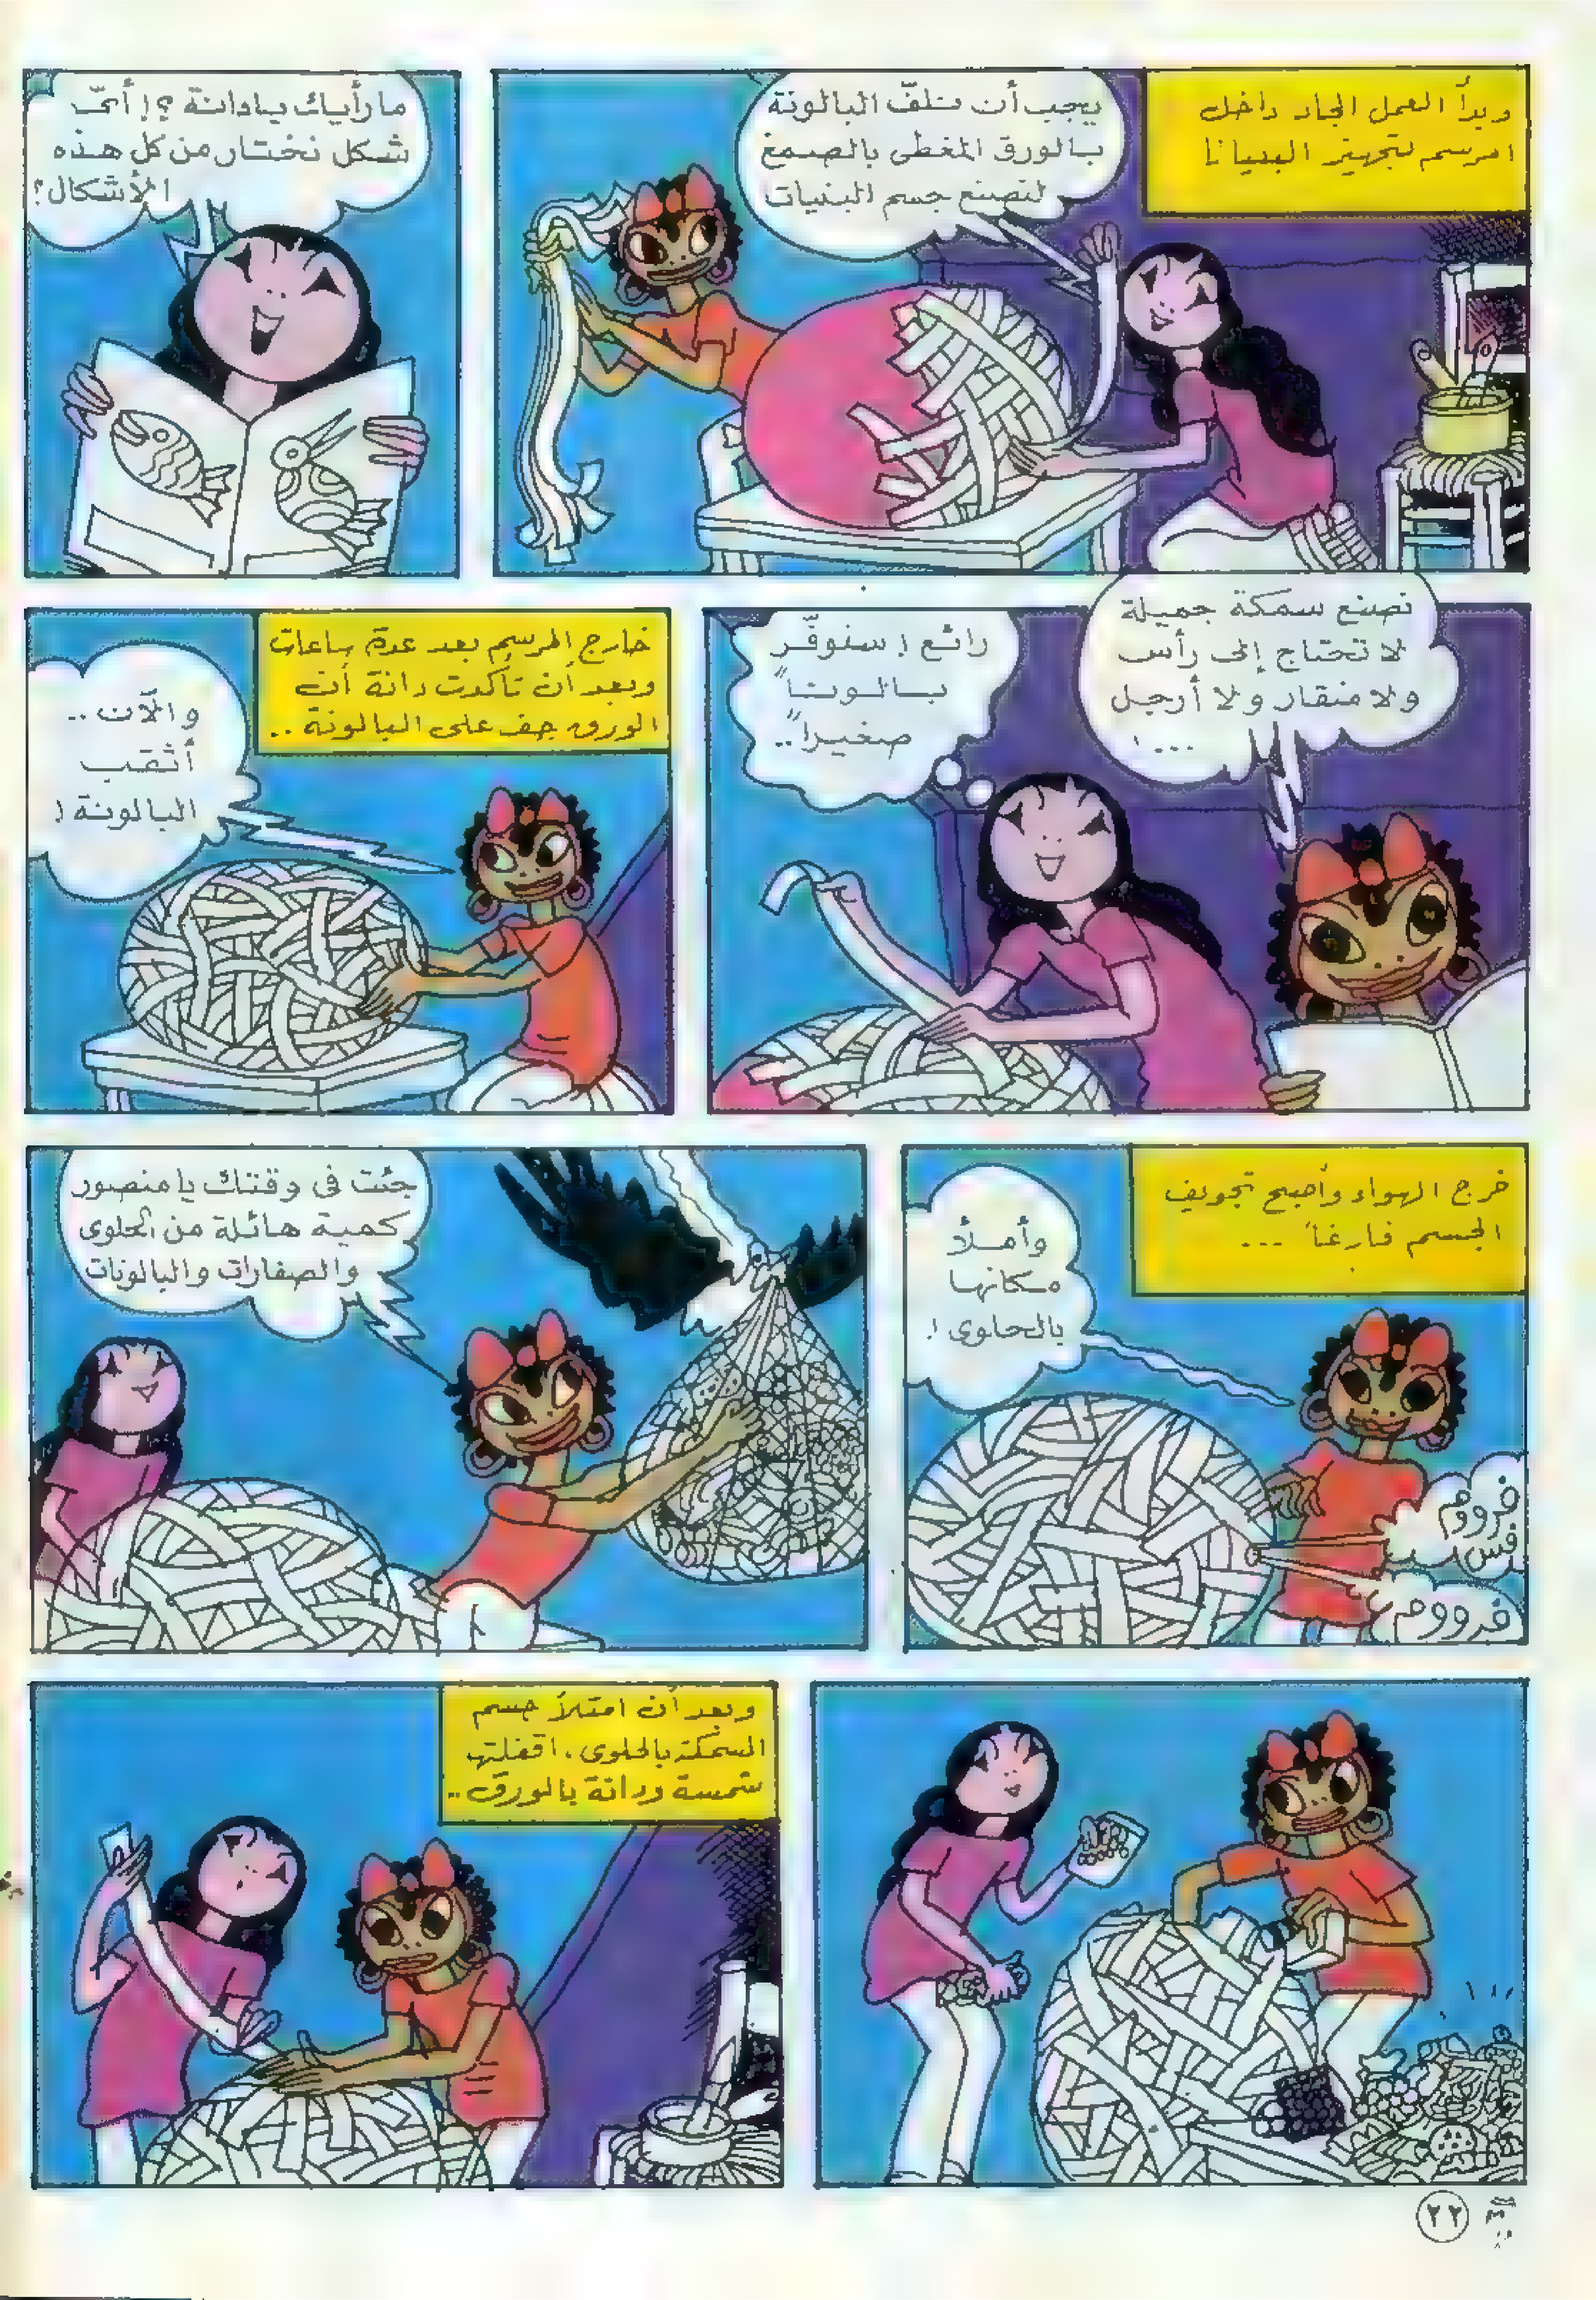 وبدأ العمل الجاد داخل
المرسم لتجهيز البنياتا
يجب أن نلفّ البالونة
بالورق المغطى بالصمغ
لنصنع جسم البنيات
ما رأيك يا دانة ؟! أيّ
شكل نختار من كل هذه
الأشكال؟
نصنع سمكة جميلة
لا تحتاج إلى رأس
ولا منقار ولا أرجل
...!
رائع ! سنوفّر
بالوناً
صغيراً..
خارج المرسم بعد عدة ساعات
وبعد أن تأكدت دانة أن
الورق جف على البالونة ..
والآن ..
أثقب
البالونة !
خرج الهواء وأصبح تجويف
الجسم فارغاً ...
وأملأ
مكانها
بالحلوى !.
فرووم
فس
فرووم
جئت فى وقتك يا منصور
كمية هائلة من الحلوى
والصفارات والبالونات
وبعد أن امتلأ جسم
السمكة بالحلوى، اقفلتها
شمسة ودانة بالورق ..
٢٢